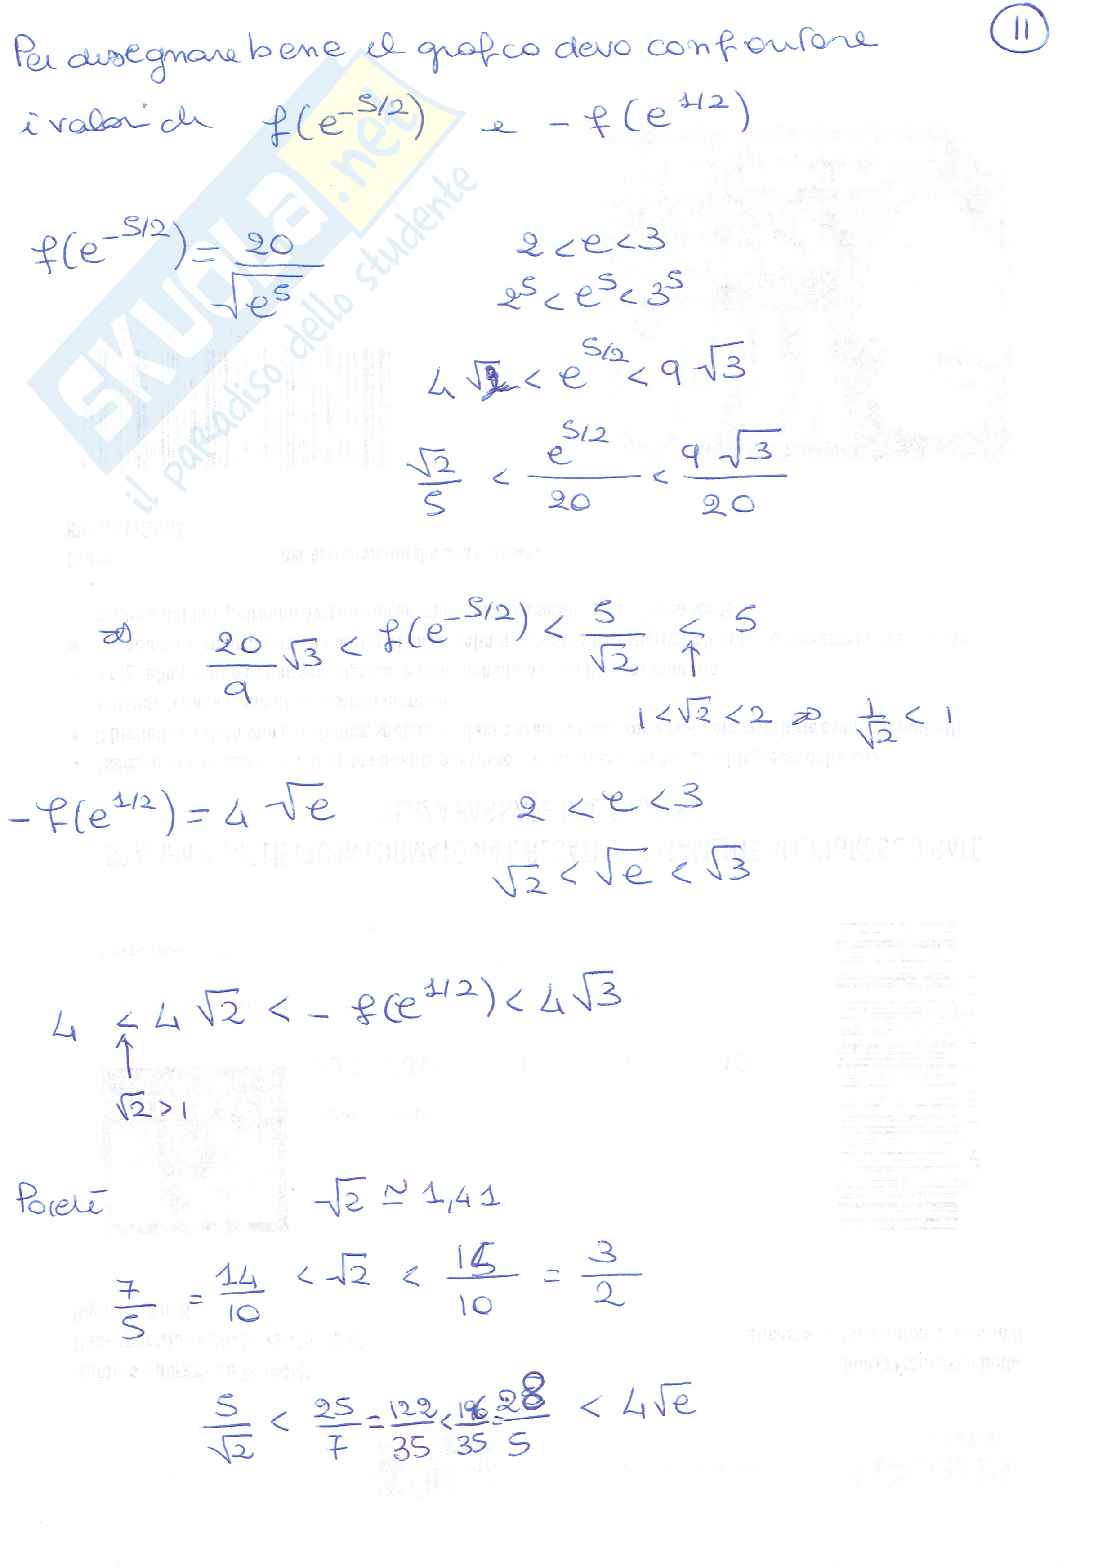 11
Per disegnare bene il grafico devo confrontare
i valori di f(e^{-5/2}) e -f(e^{1/2})
SKUOLA.net
il paradiso dello studente
f(e^{-5/2}) = 20/√e^5 2 < e < 3
2^5 < e^5 < 3^5
4√2 < e^{5/2} < 9√3
√2/5 < e^{5/2}/20 < 9√3/20
⇒ 20/9 √3 < f(e^{-5/2}) < 5/√2 < 5
1 < √2 < 2 ⇒ 1/√2 < 1
-f(e^{1/2}) = 4√e 2 < e < 3
√2 < √e < √3
4 < 4√2 < -f(e^{1/2}) < 4√3
√2 > 1
Poiché √2 ≃ 1,41
7/5 = 14/10 < √2 < 15/10 = 3/2
5/√2 < 25/7 = 122/35 < 196/35 = 28/5 < 4√e